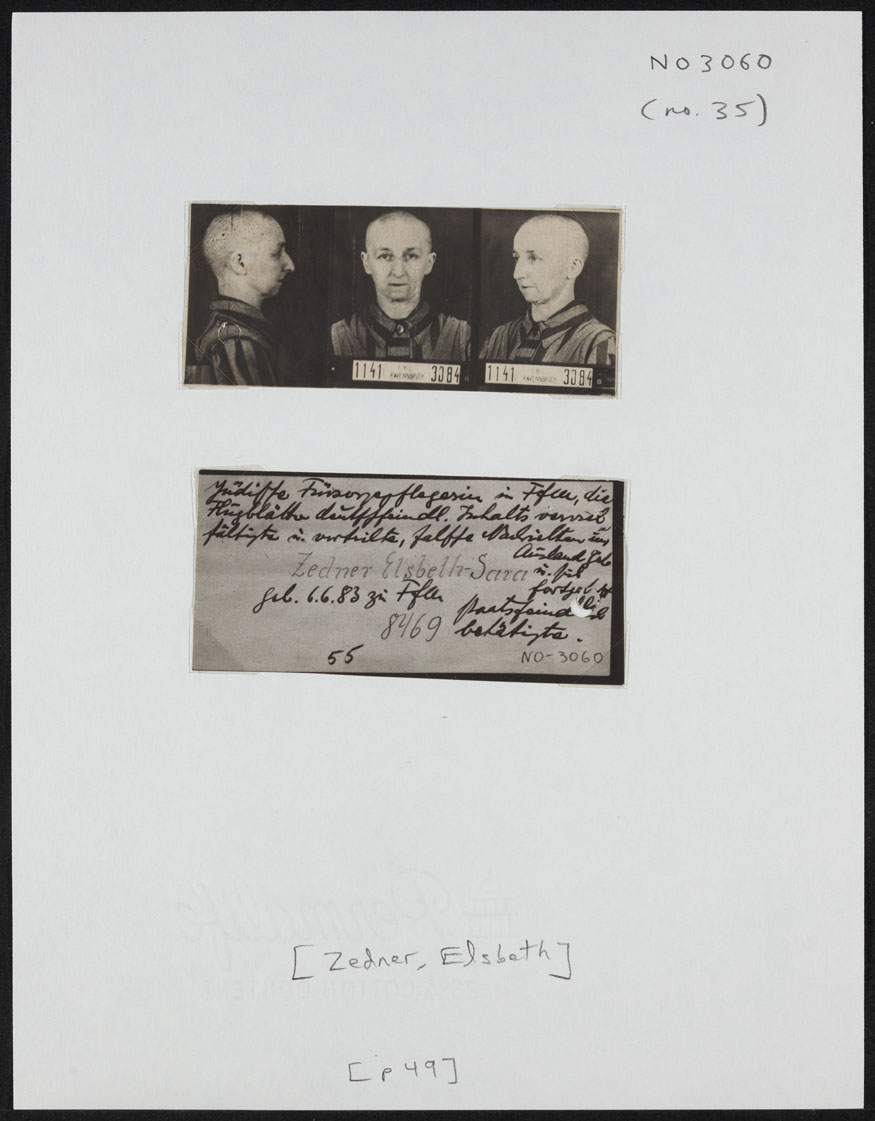 NO3060
(no. 35)
1141 RAVENSBRÜCK 3084
1141 RAVENSBRÜCK 3084
Jüdische Fürsorgepflegerin in Ffm, die
Flugblätter deutschfeindl. Inhalts verviel
fältigte u. verteilte, falsche Nachrichten ins
Ausland gab
Zedner Elsbeth-Sara u. sich
fortges.
geb. 6.6.83 zu Ffm staatsfeindlich
8469 betätigte.
55 NO-3060
Permalife
25% COTTON CONTENT
[Zedner, Elsbeth]
[p 49]